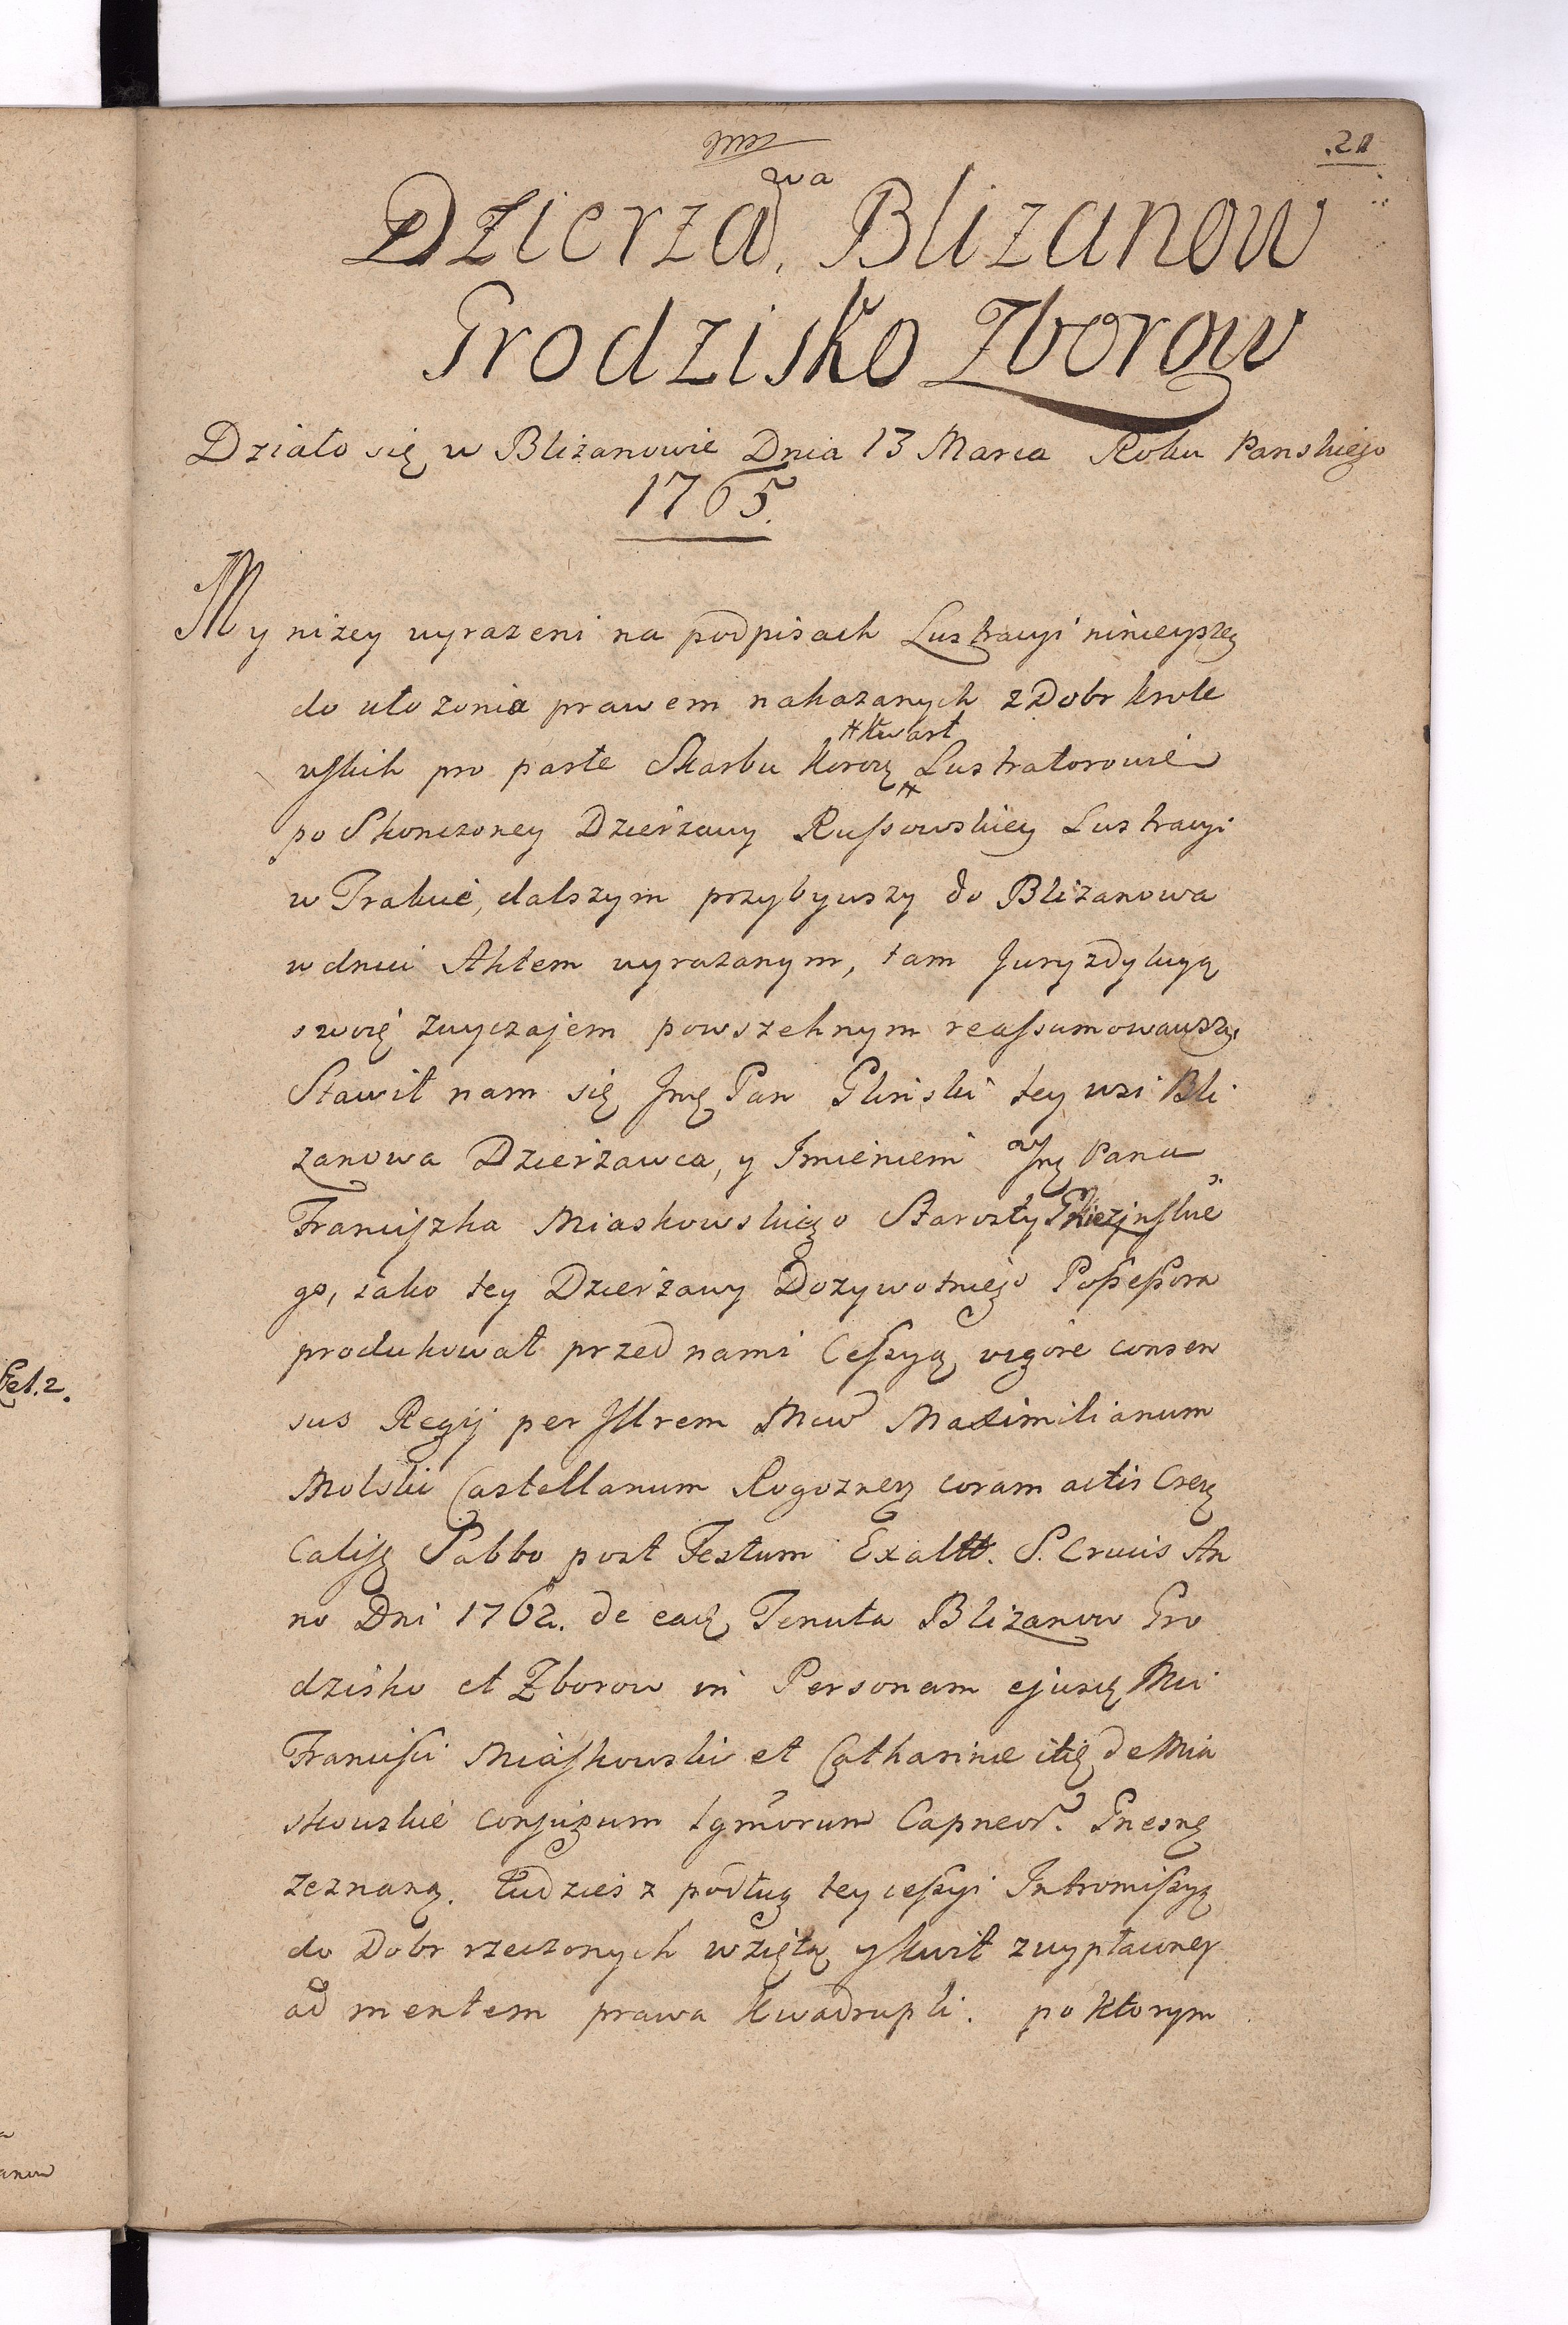 21
wa
Dzierza. Blizanow
Grodzisko Zborow
Działo się w Bliżanowie Dnia 13 Marca Roku Panskiego
1765.
My niżey wyrazeni na podpisach Lustracyi ninieyszey
do ułozenia prawem nakazanych z Dobr krole
wskich pro parte Skarbu Koroṇ Lustratorowie
# kwart
po Skonczoney Dzierżawy Russowskiey Lustracyi
w Trakcie, dalszym przybywszy do Bliżanowa
w dniu Aktem wyrażonym, tam Juryzdykcyą
swoię zwyczajem powszehnym reassumowawszy.
Stawił nam się Jmę Pan Gliński tey wsi Bli
zanowa Dzierżawca, y Imieniem Jmę Pana
Franciszka Miaskowskiego Starosty Gnieżnskie
go, jako tey Dzierżawy Dozywotniego Possessora
produkował przed nami Cessyą vigore consen
sus Regij per Jllrem Mcum Maximilianum
Molski Castellanum Rogozneṇ coram actis Creṇ
Calisṣ Sabbo post Festum Exaltt. S. Crucis An
no Dni 1762. de eadę Tenuta Blizanow Gro
dzisko et Zborow in Personam ejusdę Mci
Francisci Miaskowski et Catharinæ itidę de Mia
skowskie conjugum Lgmorum Capneor. Gnesnę
zeznaną. Tudzies z podług tey cessyi Intromissyą
do Dobr rzeczonych wziętą y kwit z wypłaconey
ad mentem prawa kwadrupli. po ktorym
Let. 2.